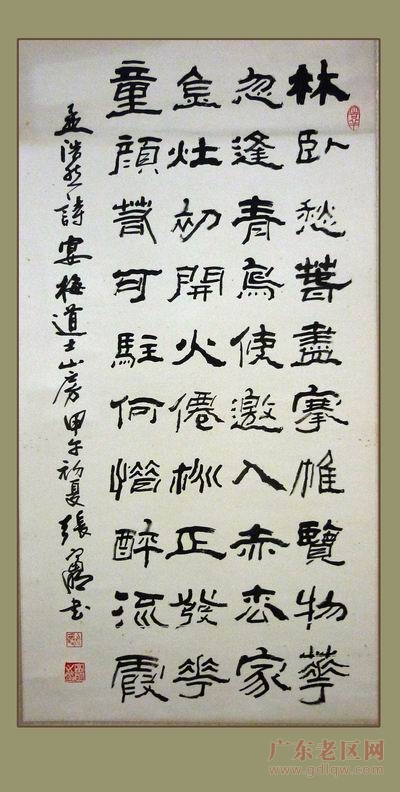 林卧愁萅盡搴帷覽物華
忽逢青鳥使邀入赤松家
金灶初開火僊桃正發花
童顔若可駐何惜醉流霞
孟浩然詩宴梅道士山房甲午初夏張書
广东老区网
www.gdlqw.com